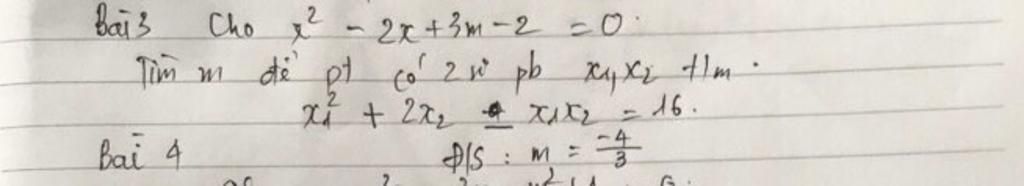 Bài 3 Cho x² - 2x + 3m - 2 = 0.
Tìm m để pt có 2 n⁰ pb x₁, x₂ t/m.
x₁² + 2x₂ - x₁x₂ = 16.
Bài 4 Đ/S : m = -4/3